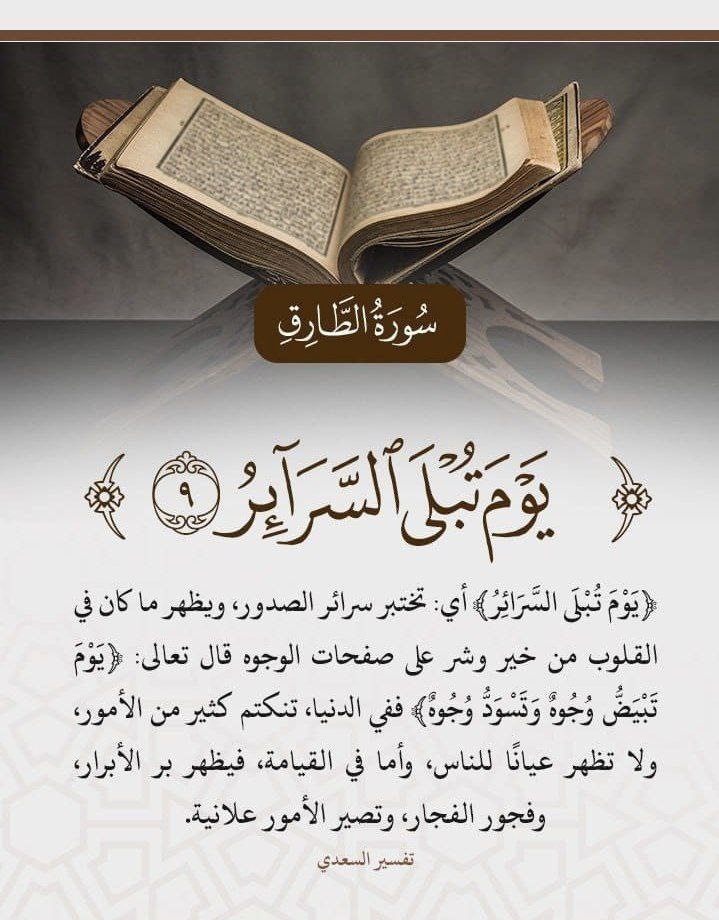 سُورَةُ الطَّارِقِ
يَوْمَ تُبْلَى ٱلسَّرَآئِرُ ٩
﴿يَوْمَ تُبْلَى السَّرَائِرُ﴾ أي: تختبر سرائر الصدور، ويظهر ما كان في
القلوب من خير وشر على صفحات الوجوه قال تعالى: ﴿يَوْمَ
تَبْيَضُّ وُجُوهٌ وَتَسْوَدُّ وُجُوهٌ﴾ ففي الدنيا، تنكتم كثير من الأمور،
ولا تظهر عيانًا للناس، وأما في القيامة، فيظهر بر الأبرار،
وفجور الفجار، وتصير الأمور علانية.
تفسير السعدي